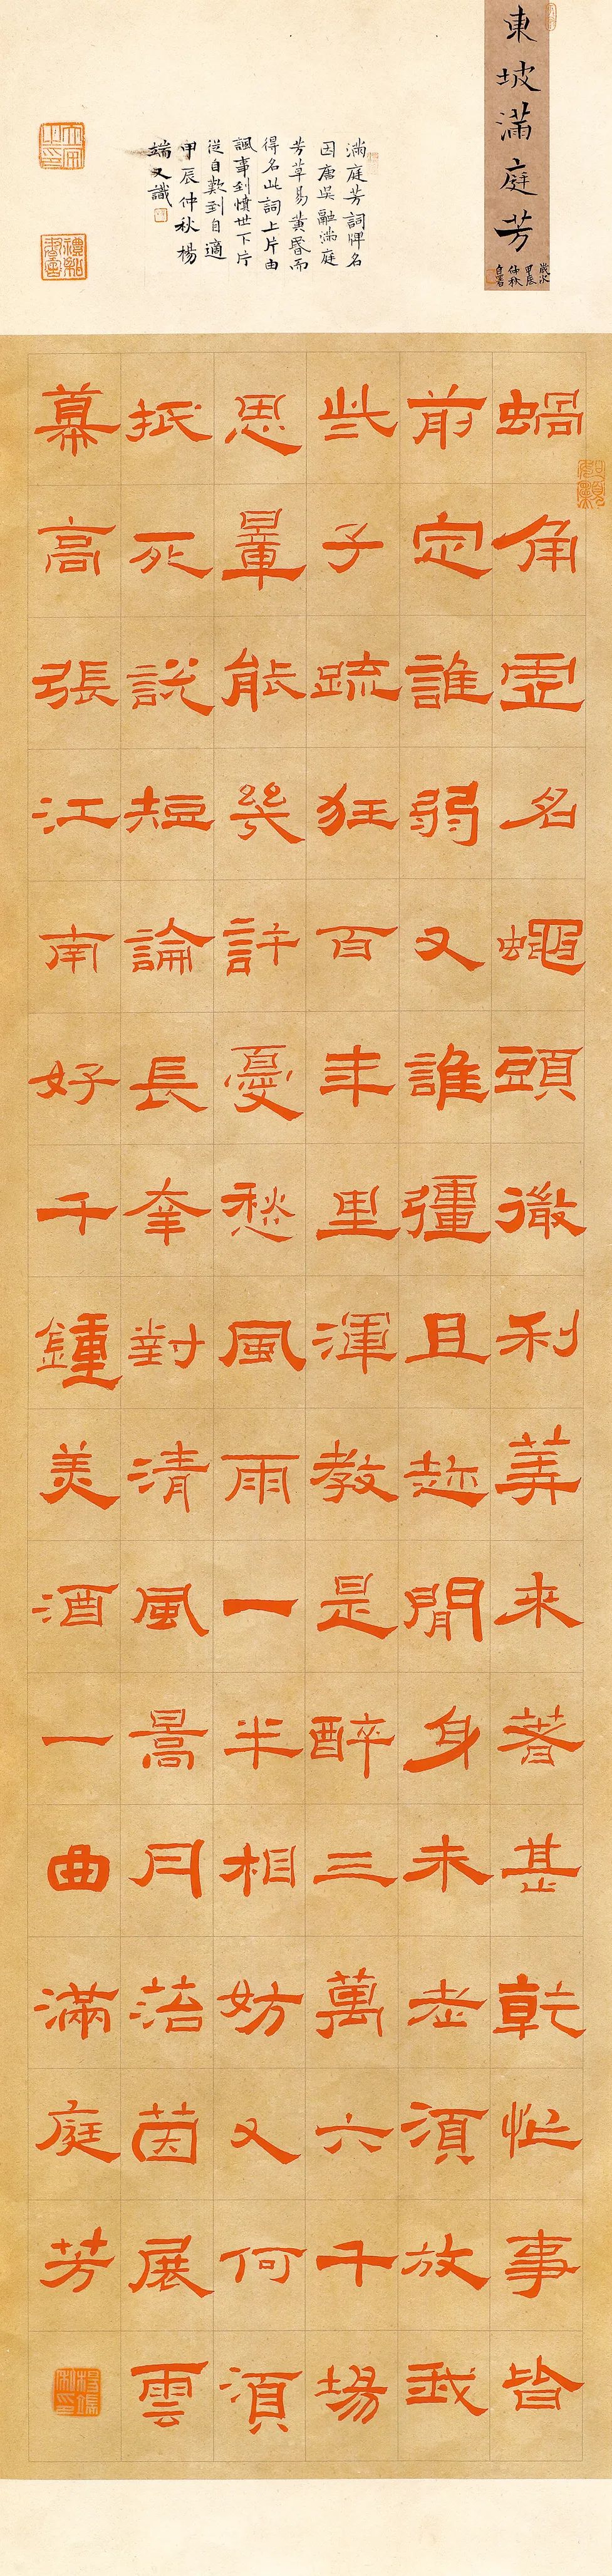 東坡滿庭芳
歲次
甲辰
仲秋
自署
滿庭芳詞牌名
因唐吳融滿庭
芳草易黃昏而
得名此詞上片由
諷事到憤世下片
從自歎到自適
甲辰仲秋楊
端又識
蝸角虛名蠅頭微利筭來著甚乾忙事皆
前定誰弱又誰彊且趂閒身未老須放我
些子疏狂百年里渾教是醉三萬六千場
思量能幾許憂愁風雨一半相妨又何須
抵死說短論長幸對清風皓月苔茵展雲
幕高張江南好千鍾美酒一曲滿庭芳